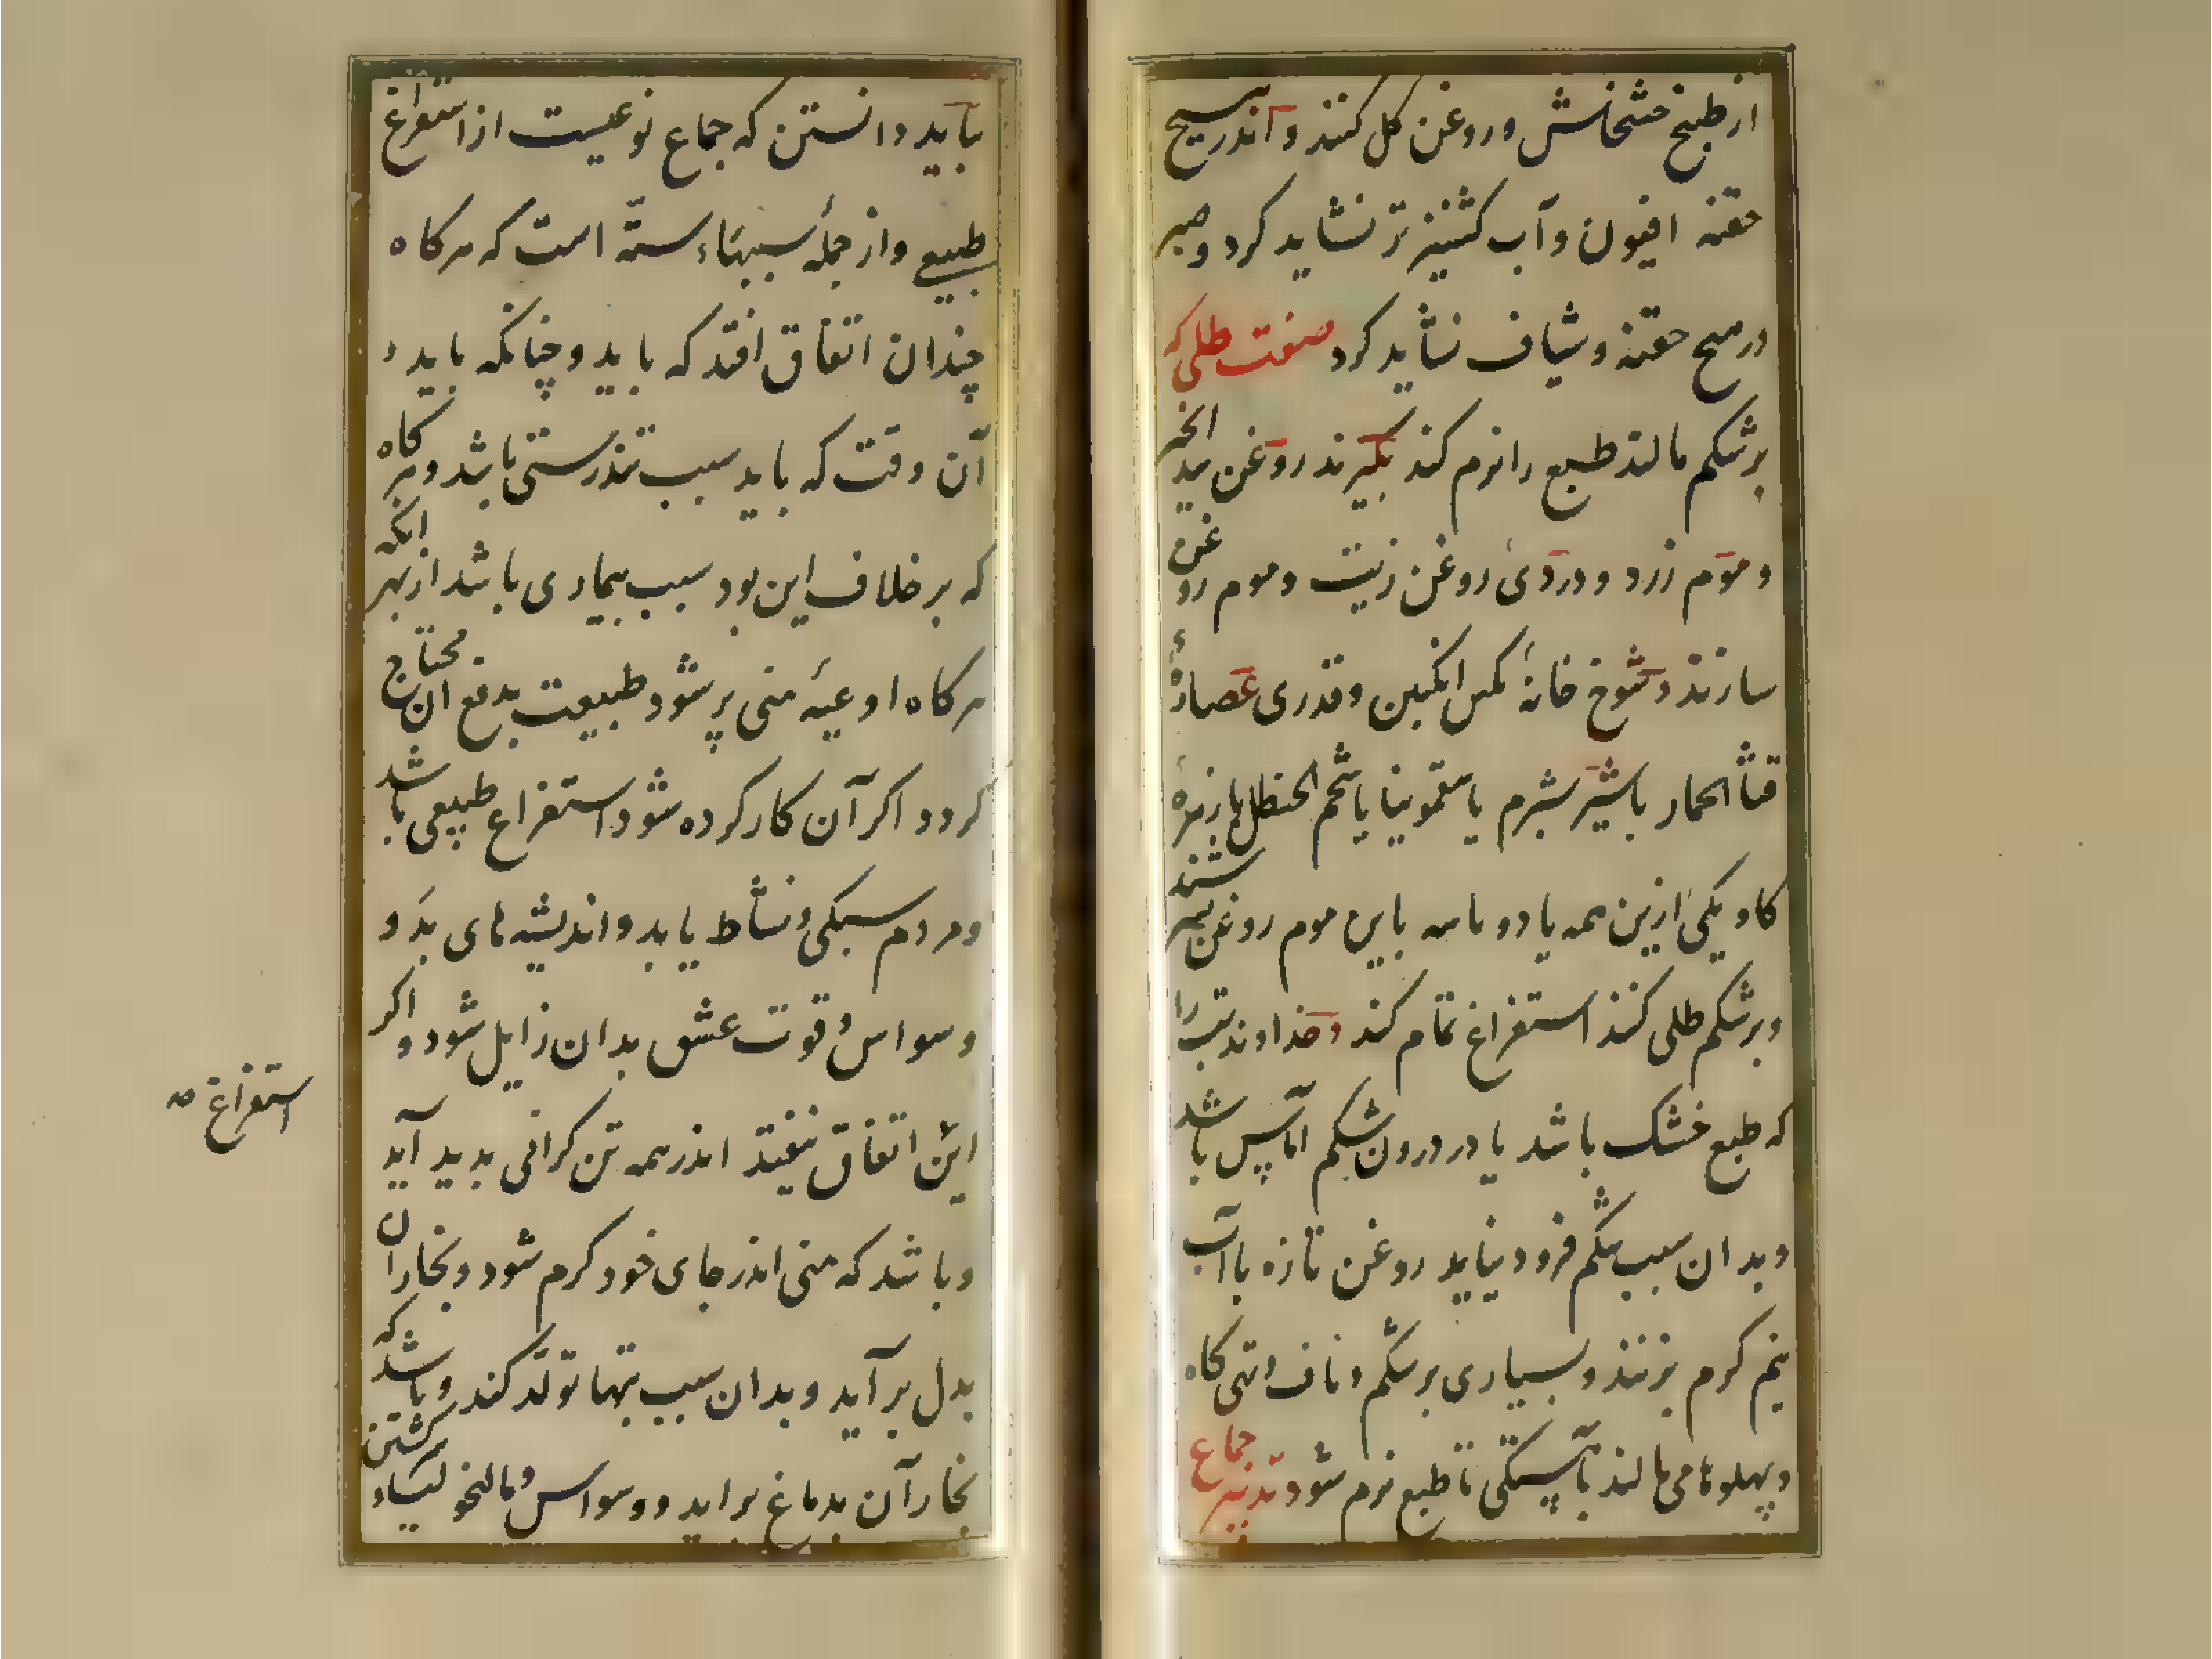 از طبیخ خشخاش و روغن کل کنند و اندر هیچ
حقنه افیون و آب کشنیز تر نشاید کرد و صبر
در هیچ حقنه و شیاف نشاید کرد صفت طلی که
بر شکم مالند طبع را نرم کند بگیرند روغن بید انجیر
و موم زرد و دردیٔ روغن زیت و موم روغن
سازند و شوخ خانهٔ مکس انکبین و قدری عصارهٔ
قثاالحمار یا شیر شبرم یا سقمونیا یا شحم الحنظل یا زهرهٔ
کاو یکی ازین همه یا دو یا سه باین موم روغن بسرشند
و بر شکم طلی کنند استفراغ تمام کند و خداوند تب را
که طبع خشک باشد یا در درون شکم آماس باشد
و بدان سبب شکم فرود نیاید روغن تازه با آب
نیم کرم بزنند و بسیاری بر شکم و ناف و تهی کاه
و پهلوها می مالند بآهستکی تا طبع نرم شود تدبیر جماع
بباید دانستن که جماع نوعیست از استفراغ
طبیعی و از جملهٔ سببهاء ستّه است که هرکاه
چندان اتفاق افتد که باید و چنانکه باید و
آن وقت که باید سبب تندرستی باشد و هرکاه
که بر خلاف این بود سبب بیماری باشد از بهر انکه
هرکاه اوعیهٔ منی پر شود طبیعت بدفع ان محتاج
کردد اکر آن کار کرده شود استفراغ طبیعی باشد
و مردم سبکی و نشاط یابد و اندیشه های بد و
وسواس و قوت عشق بدان زایل شود و اکر
این اتفاق نیفتد اندر همه تن کرانی بدید آید
و باشد که منی اندر جای خود کرم شود و بخار ان
بدل بر آید و بدان سبب تبها تولّد کند و باشد که
بخار آن بدماغ براید و وسواس و مالنخولیاء
استفراغ صه